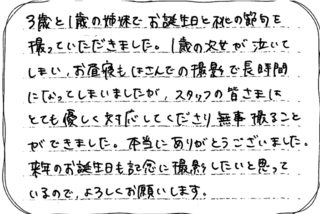 3歳と1歳の姉妹でお誕生日と桃の節句を
撮っていただきました。1歳の次女が泣いて
しまい、お昼寝もはさんでの撮影で長時間
になってしまいましたが、スタッフの皆さまは
とても優しく対応してくださり無事撮ること
ができました。本当にありがとうございました。
来年のお誕生日も記念に撮影したいと思って
いるので、よろしくお願いします。